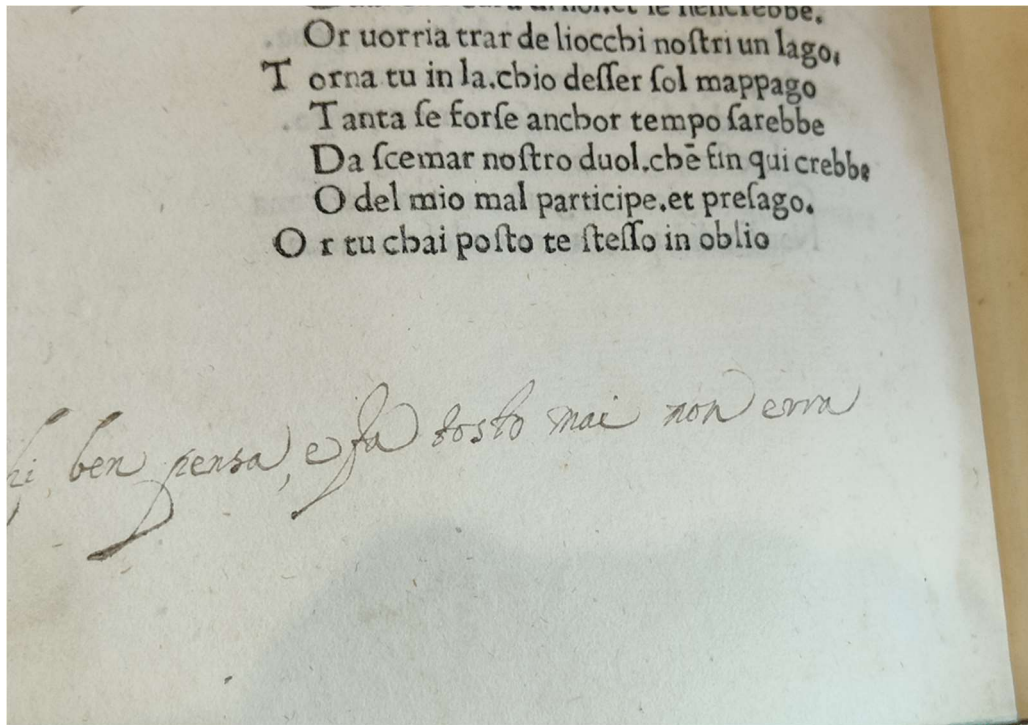 et le nencrebbe.
Or uorria trar de liocchi noſtri un lago,
T orna tu in la.chio deſſer ſol mappago
Tanta ſe forſe anchor tempo ſarebbe
Da ſcemar noſtro duol.chē fin qui crebbe
O del mio mal participe.et preſago.
O r tu chai poſto te ſteſſo in oblio
hi ben pensa, e fa tosto mai non erra